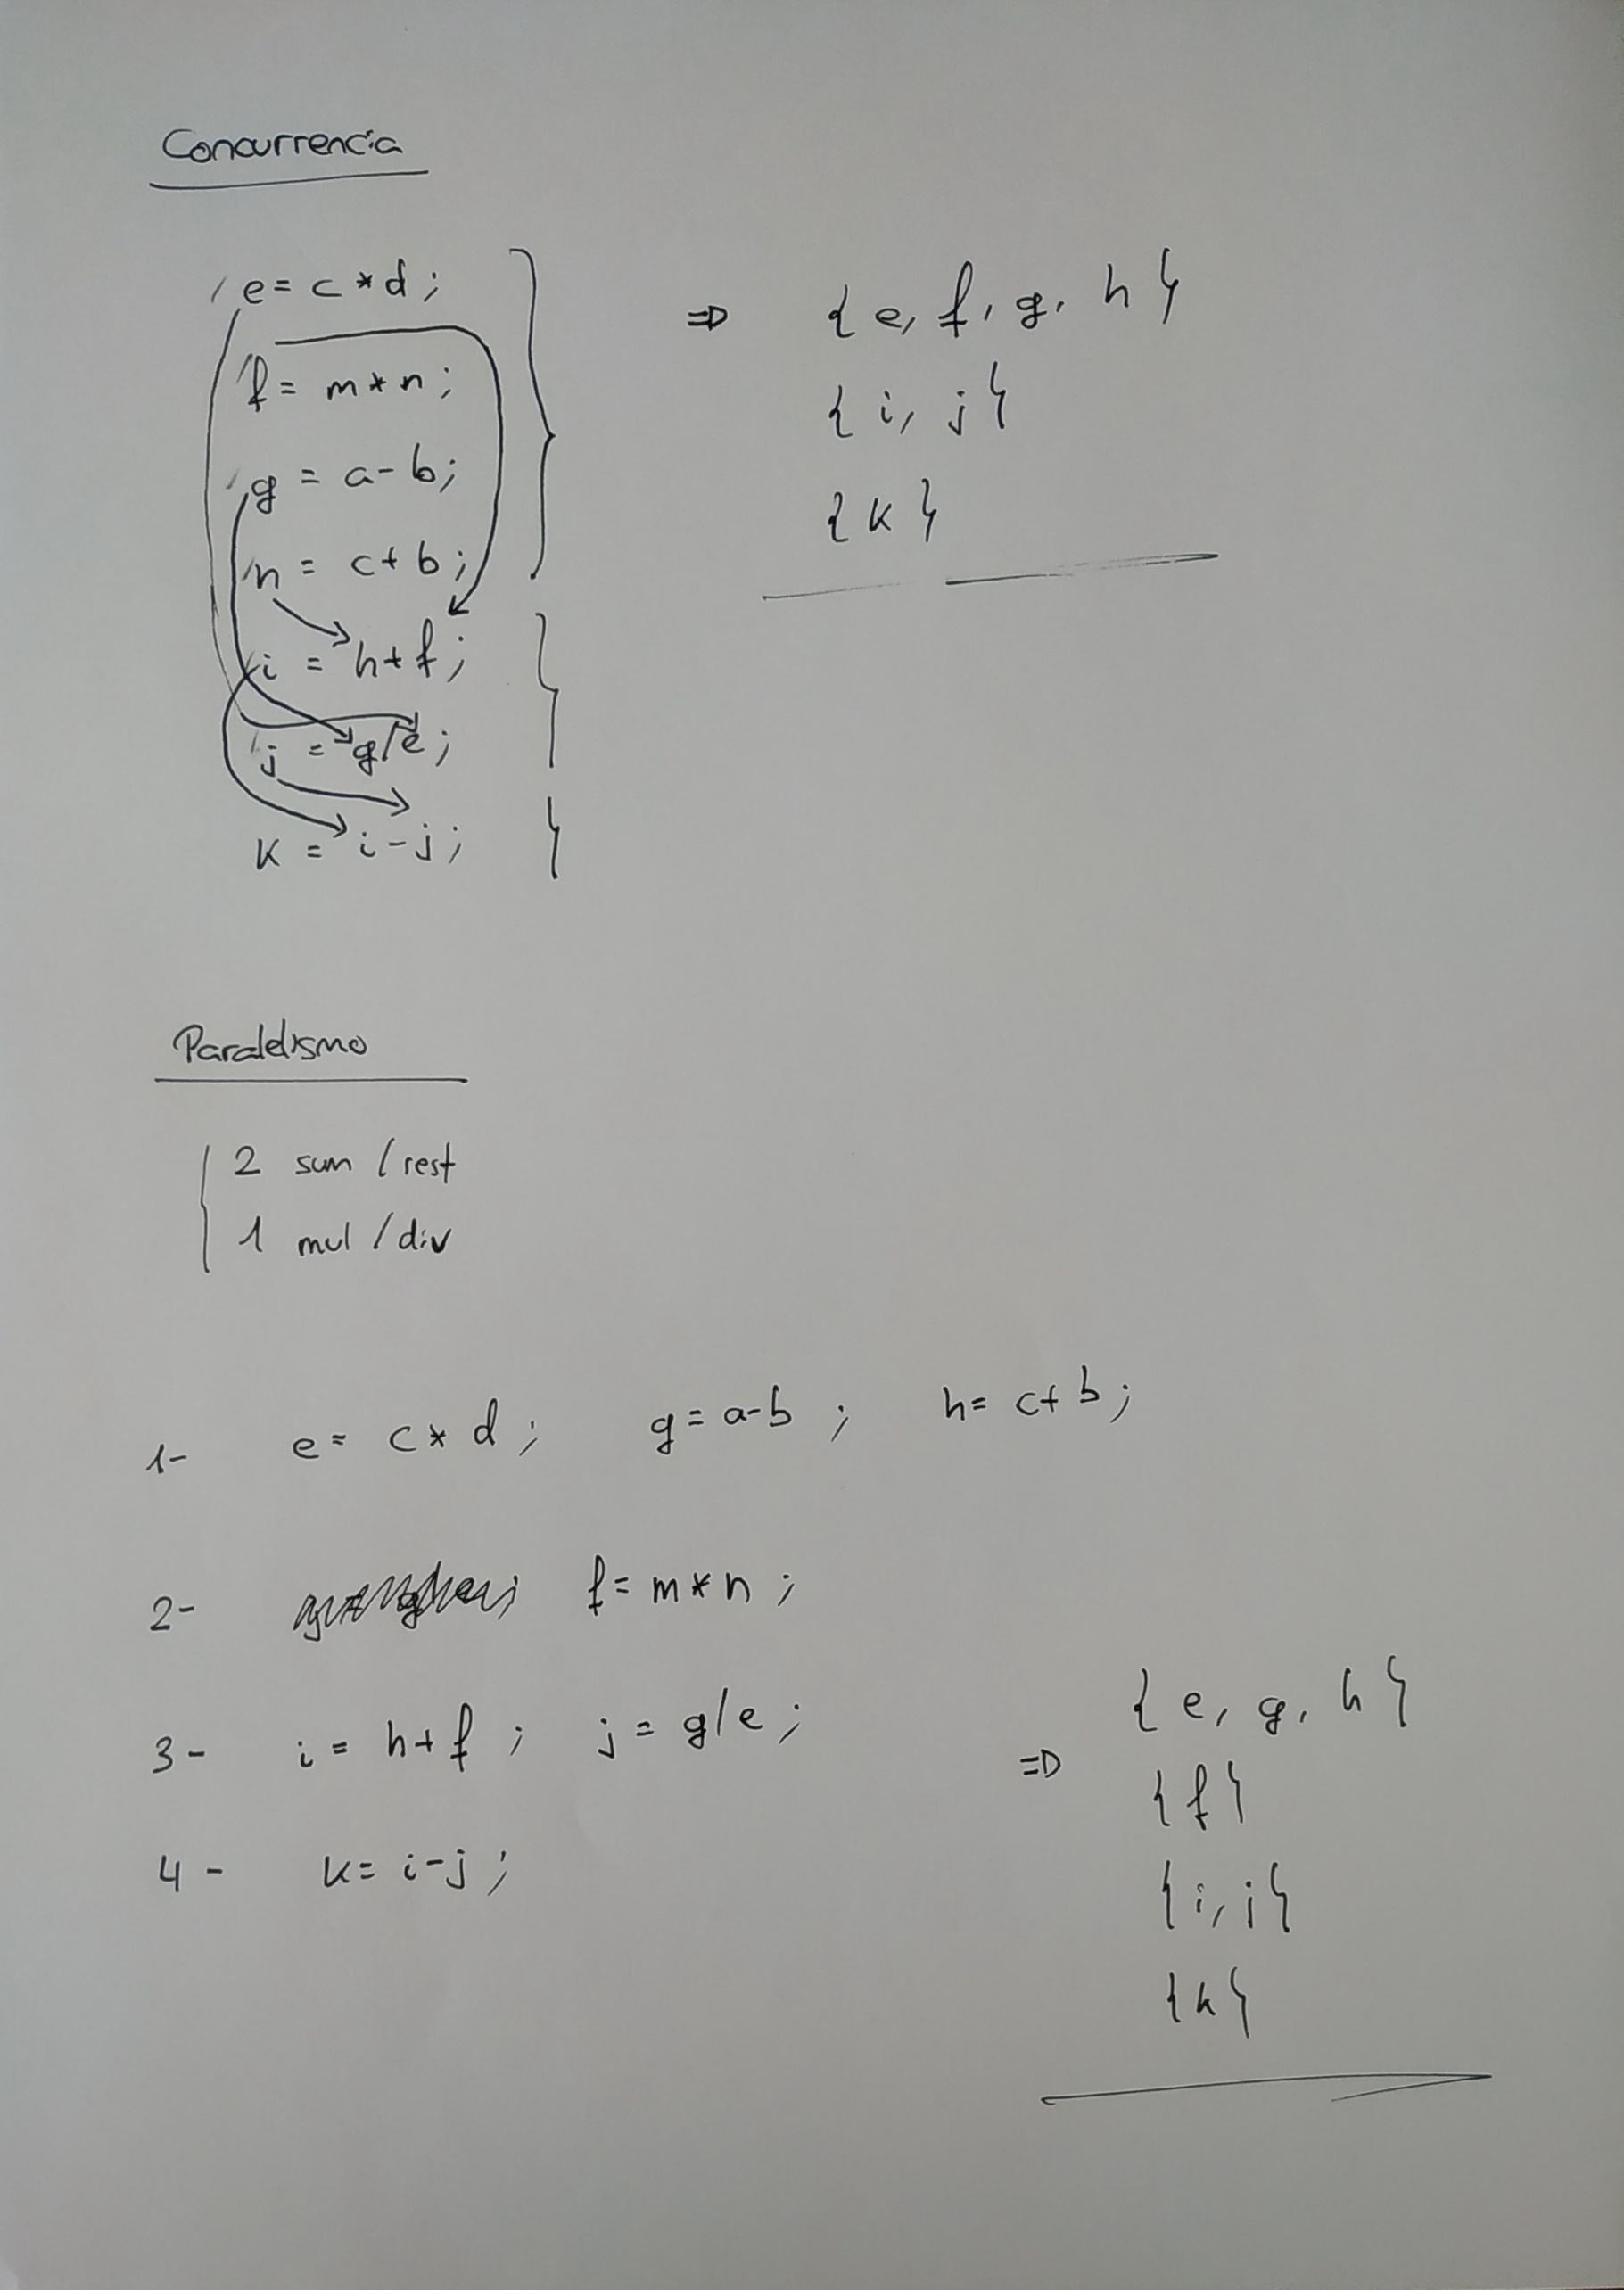 Concurrencia
e = c * d ;
f = m * n ;
g = a - b ;
h = c + b ;
i = h + f ;
j = g / e ;
k = i - j ;
=> { e, f, g, h }
{ i, j }
{ k }
Paralelismo
2 sum / rest
1 mul / div
1- e = c * d ; g = a - b ; h = c + b ;
2- f = m * n ;
3- i = h + f ; j = g / e ;
4- k = i - j ;
=> { e, g, h }
{ f }
{ i, j }
{ k }